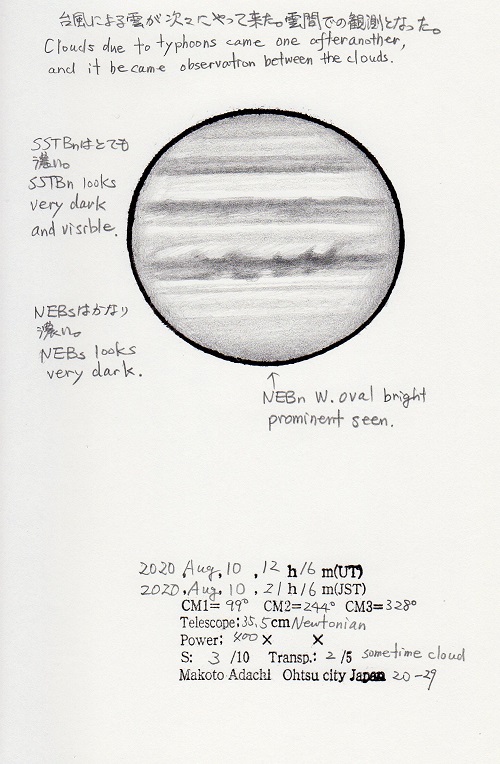 台風による雲が次々にやって来た。雲間での観測となった。
Clouds due to typhoons came one after another,
and it became observation between the clouds.
SSTBnはとても
濃い。
SSTBn looks
very dark
and visible.
NEBsはかなり
濃い。
NEBs looks
very dark.
↑
NEBn W. oval bright
prominent seen.
2020 ,Aug, 10 , 12 h 16 m(UT)
2020 ,Aug, 10 , 21 h 16 m(JST)
CM1= 99° CM2=244° CM3=328°
Telescope:35.5cm Newtonian
Power: 400 × ×
S: 3 /10 Transp.: 2 /5 sometime cloud
Makoto Adachi Ohtsu city Japan 20-29